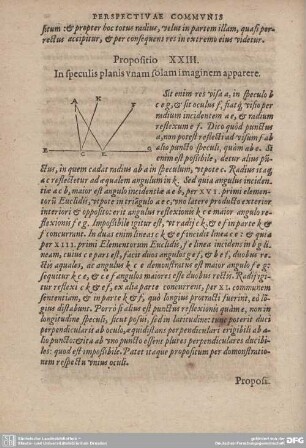 PERSPECTIVAE COMMVNIS
situm : & propter hoc totus radius, velut in partem illam, quasi per-
rectus accipitur, & per consequens res in extremo eius videtur.
Propositio XXIII.
In speculis planis vnam solam imaginem apparere.
A K F
B C E G
Sit enim res visa a, in speculo b
c e g, & sit oculus f, fiatq́; visio per
radium incidentem a e, & radium
reflexum e f. Dico quòd punctus
a, non potest reflecti ad visum f ab
alio puncto speculi, quàm ab e. Si
enim est possibile, detur alius pun-
ctus, in quem cadat radius ab a in speculum, vtpote c. Radius itaq;
a c reflectetur ad æqualem angulum in k. Sed quia angulus inciden-
tiæ a c b, maior est angulo incidentiæ a e b, per XVI. primi elemen-
torũ Euclidis, vtpote in triãgulo a e c, vno latere producto exterior
interiori & opposito: erit angulus reflexionis k c e maior angulo re-
flexionis f e g. Impossibile igitur est, vt radij c k, & e f in parte k &
f concurrant. In duas enim lineas c k & e f incidit linea c e : & quia
per XIII. primi Elementorum Euclidis, f e linea incidens in b g li-
neam, cuius c e pars est, facit duos angulos g e f, & b e f, duobus re-
ctis æquales, at angulus k c e demonstratus est maior angulo f e g:
sequitur k c e, & c e f angulos maiores esse duobus rectis. Radij igi-
tur reflexi c k & e f, ex alia parte concurrent, per XI. communem
sententiam, & in parte k & f, quò longius protracti fuerint, eò lõ-
gius distabunt. Porrò si alius est punctus reflexionis quàm e, non in
longitudine speculi, sicut posui, sed in latitudine: tunc poterit duci
perpendicularis ab oculo, æquidistans perpendiculari erigibili ab a-
lio puncto: & ita ab vno puncto essent plures perpendiculares ducibi-
les: quod est impossibile. Patet itaque propositum per demonstratio-
nem respectu vnius oculi.
Proposi-